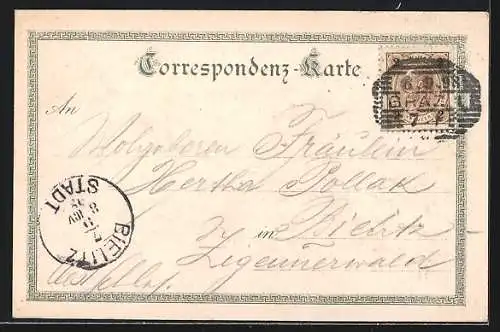 Correspondenz-Karte
An
Wolgeboren Fräulein
Hertha Pollak
in Bielitz
Zigeunerwald
GRAZ
BIELITZ
STADT